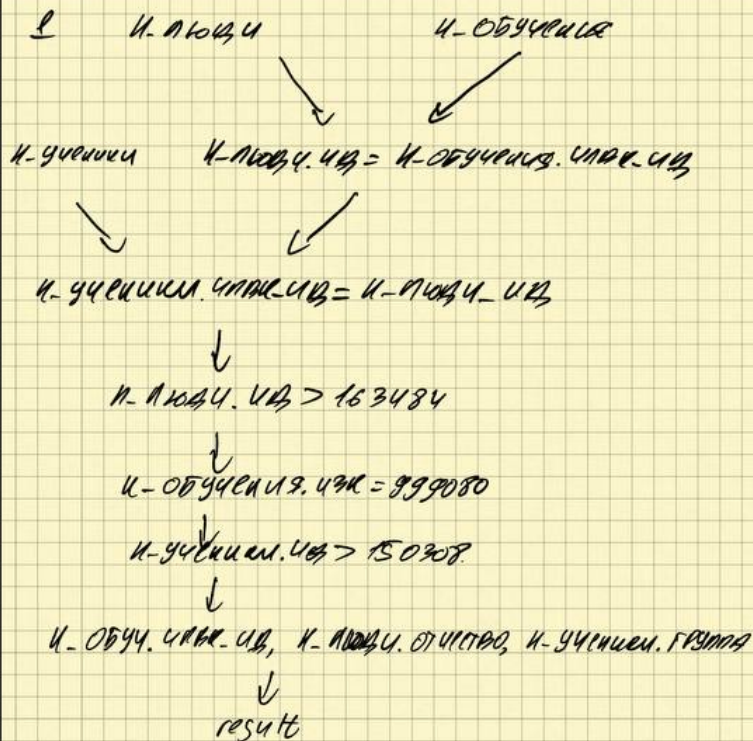 1 Н-ЛЮДИ Н-ОБУЧЕНИЯ
Н-УЧЕНИКИ Н-ЛЮДИ.ИД = Н-ОБУЧЕНИЯ.ЧЛВК-ИД
Н-УЧЕНИКИ.ЧЛВК-ИД = Н-ЛЮДИ-ИД
Н-ЛЮДИ.ИД > 163484
Н-ОБУЧЕНИЯ.НЗК = 999080
Н-УЧЕНИКИ.ИД > 150308.
Н-ОБУЧ.ЧЛВК-ИД, Н-ЛЮДИ.ОТЧЕСТВО, Н-УЧЕНИКИ.ГРУППА
result